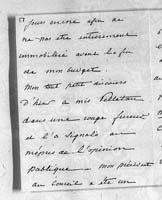 puis encore afin de
ne pas être entièrement
immobilisé avant la fin
de mon budget
Mon petit discours
d'hier a mis Pelletan
dans une rage fureur
et l'a signalé au
mépris de l'opinion
publique - mon président
du conseil a été un